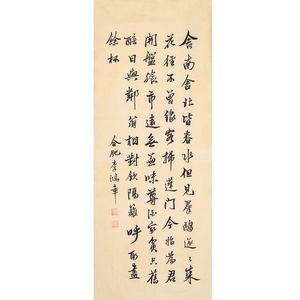 舍南舍北皆春水但見羣鷗逐〻來
花徑不曾緣客掃蓬門今始為君
開盤飧市遠無兼味尊酒家貧只舊
醅肯與鄰翁相對飲隔籬呼取盡
餘杯
合肥李鴻章